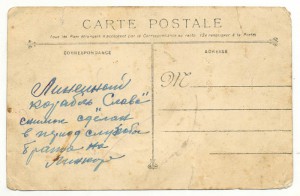 CARTE POSTALE
CORRESPONDANCE
ADRESSE
M
Линейный
корабль "Слава"
снимок сделан
в период службы
брата на